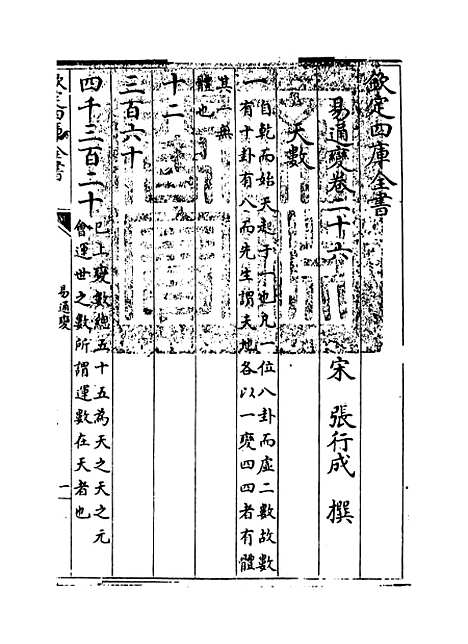 欽定四庫全書
易通變卷二十六
宋 張行成 撰
天數
一
自乾而始天起于一也凡一位八卦而虛二數故數
有十卦有八而先生謂天地各以一變四四者有體
其一無
體也
十二
三百六十
四千三百二十
已上變數總五十五為天之天之元
會運世之數所謂運數在天者也
易通變
一